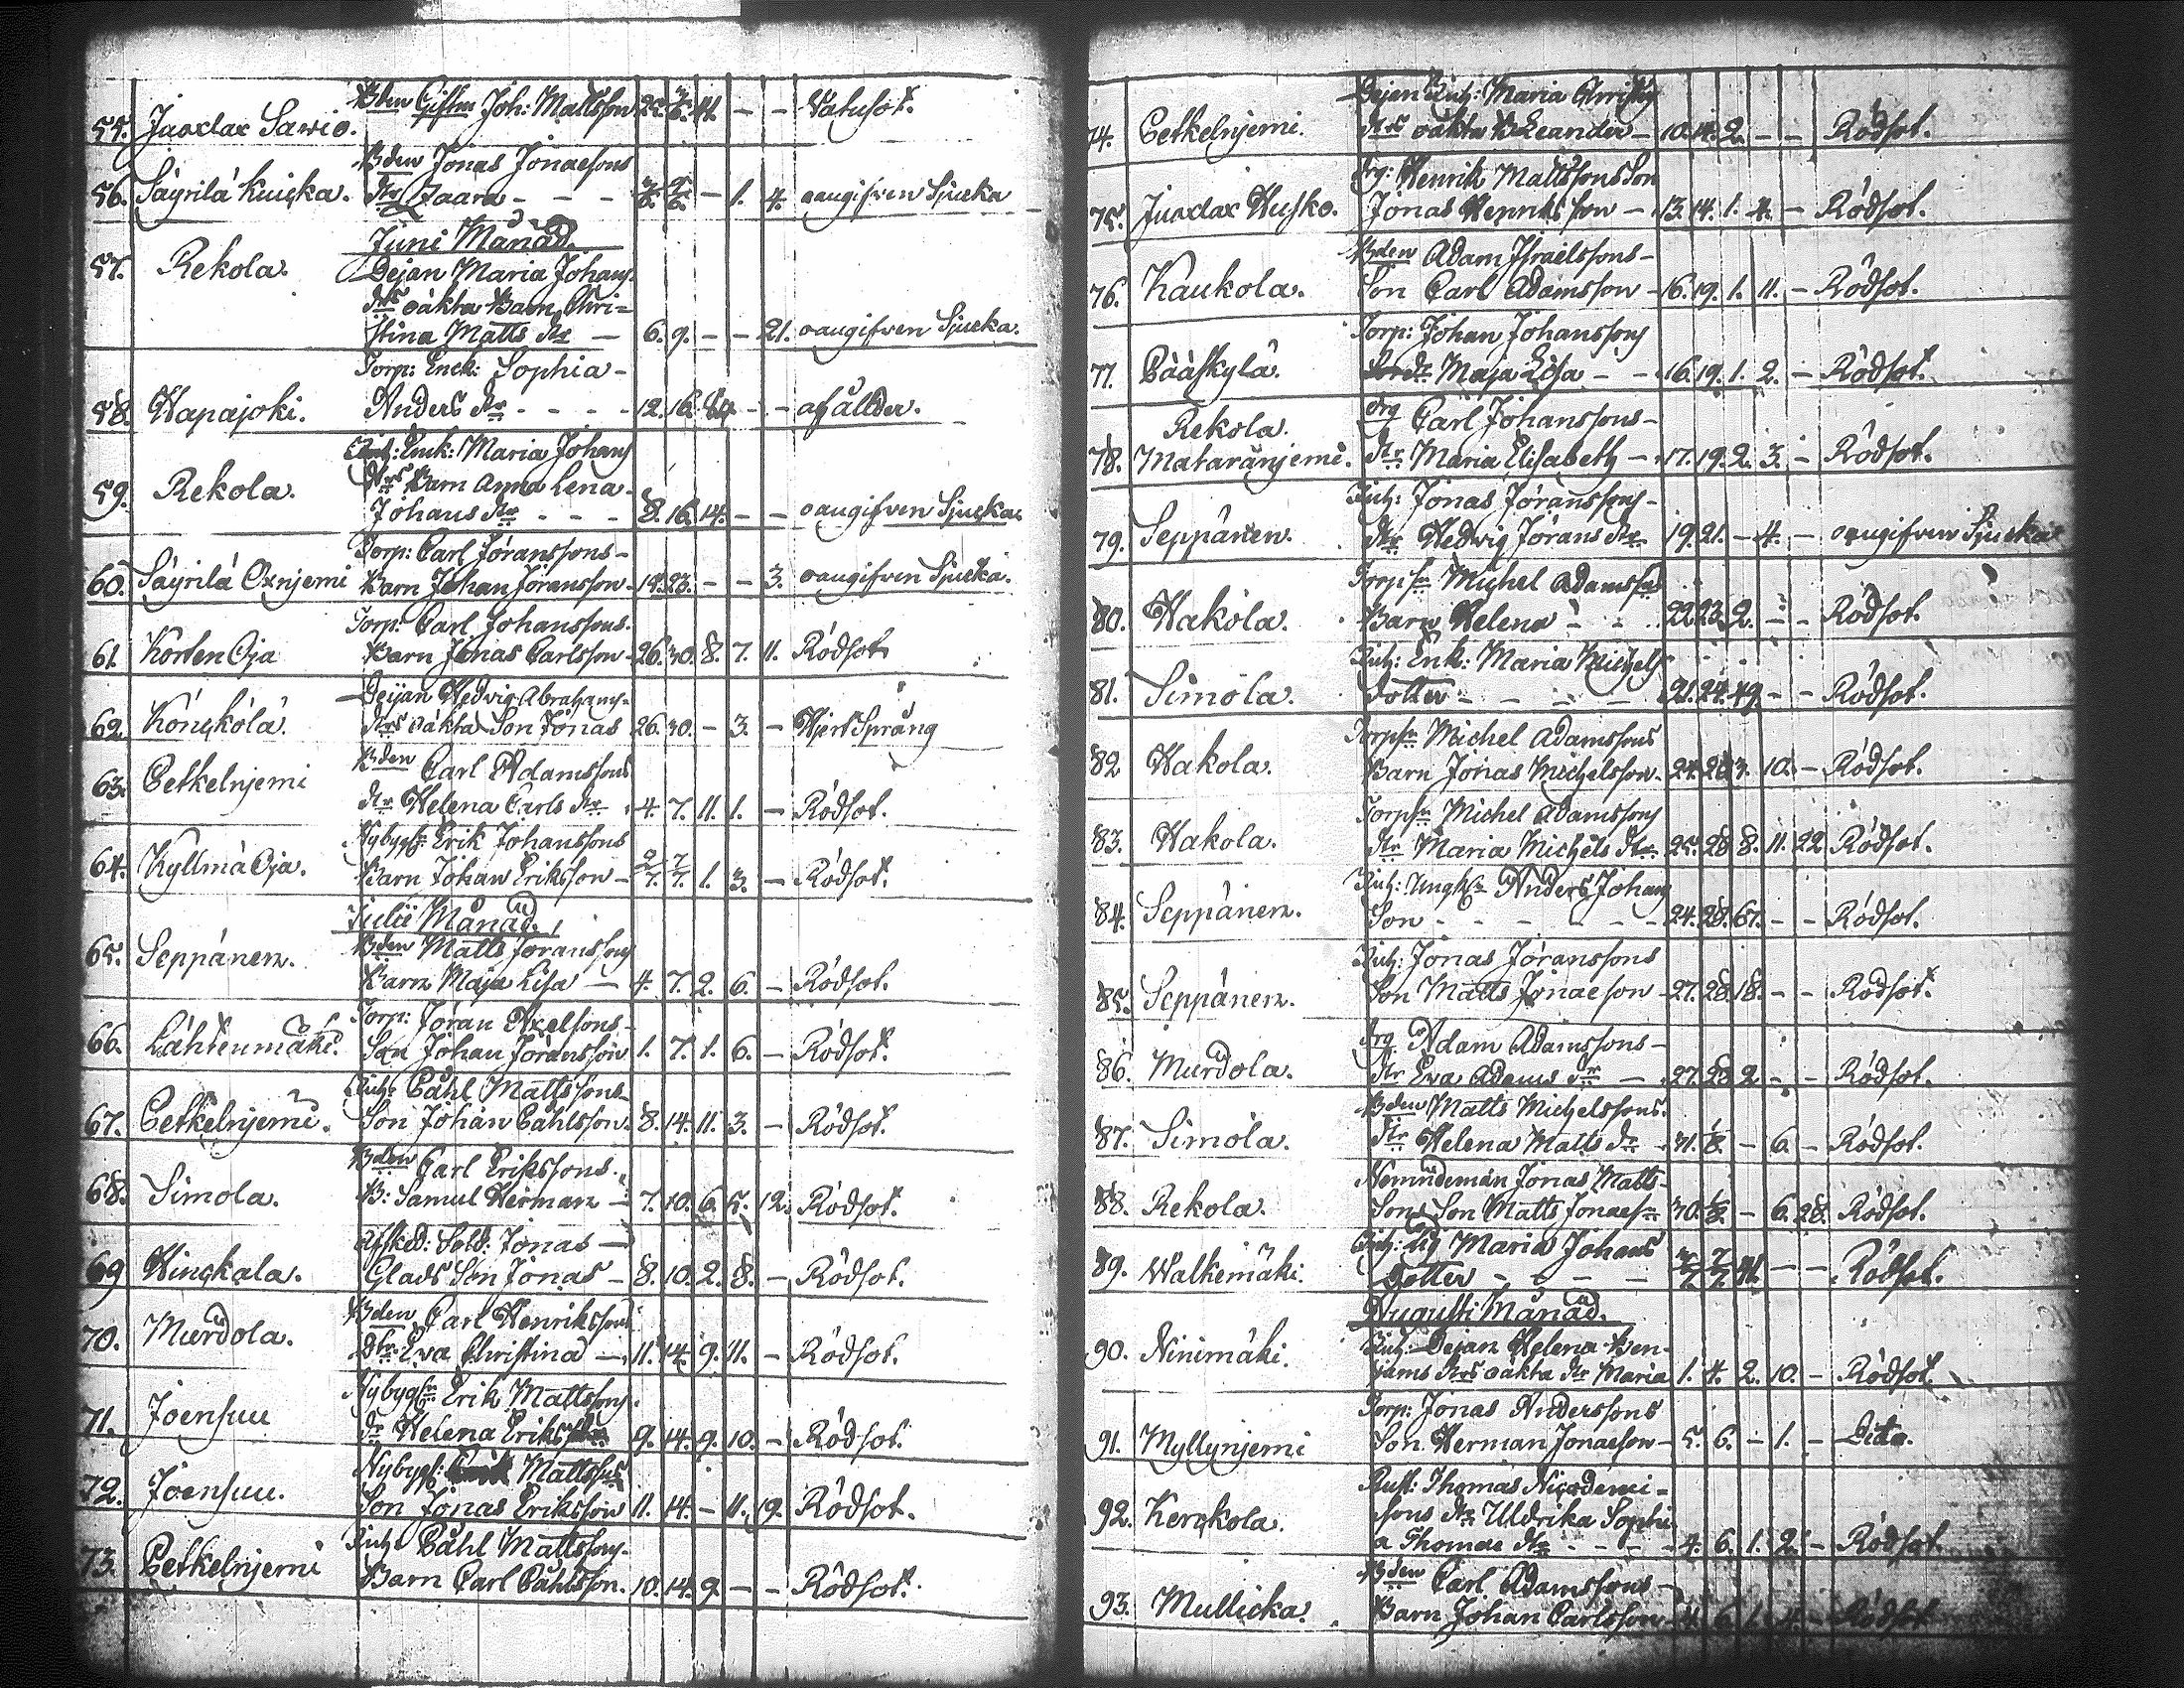 Bden Giftm Joh: Mattsson
55. Juoxlax Sawio. 25. 3/6. 41. – – Watusot.
Bden Jonas Jonaesons
56. Säyrilä Knuka. dtr Zaara – – – – 1. 4. oangifven Sjucka
Juni Månad.
57. Rekola. Pejan Maria Johans
dtrs oäkta Barn Chri=
stina Matts dtr – 6. 9. – – 21. oangifven Sjucka.
Torp: Enck: Sophia –
58. Hapajoki. Anders dtr - - - - 12. 16. 84 – – af ållder.
Inh: Enk: Maria Johans
59. Rekola. dtrs Barn Anna Lena
Johans dtr - - - 8. 16. 14. – – oangifven Sjucka.
Torp: Carl Jöranssons –
60. Säyrilä Oxnjemi Barn Johan Jöransson – 19. 23. – – 3. oangifven Sjucka.
Torp: Carl Johanssons.
61. Korten Oja Barn Jonas Carlsson – 26. 30. 8. 7. 11. Rödsot
Pejan Hedvig Abrahams-
62. Könckölä. dtrs oäkta Son Jonas 26. 30. – 3. – Hjert Språng
Bden Carl Adamssons
63. Petkelnjemi dtr Helena Carls dtr 4. 7. 11. 1. – Rödsot.
Nybygg: Erik Johanssons
64. Kyllmä Oja. Barn Johan Eriksson – 2/7. 7/7. 1. 3. – Rödsot.
Julii Månad.
65. Seppänen. Bden Matts Jöranssons
Barn Maja Lisa – 4. 7. 2. 6. – Rödsot.
Torp: Jöran Axelsons –
66. Lähtenmäki. Son Johan Jöransson 1. 7. 1. 6. – Rödsot.
Inh: Påhl Mattssons
67. Petkelnjemi. Son Johan Påhlsson. 8. 14. 11. 3. – Rödsot.
Bden Carl Erikssons.
68. Simola. B: Samuel Herman – 7. 10. 6. 5. 12. Rödsot.
Afsked: Sold: Jonas –
69 Hinckala. Glads Son Jonas – 8. 10. 2. 8. – Rödsot.
Bden Carl Henrikssons
70. Murdola. Dtr Eva Christina – 11. 14. 9. 11. – Rödsot.
Nybygg: Erik Mattssons.
71. Joensuu dr Helena Eriks dtr 9. 14. 9. 10. – Rödsot.
Nybygg: Erik Mattssons
72. Joensuu. Son Jonas Eriksson 11. 14. – 11. 19. Rödsot.
Inh: Påhl Mattssons-
73. Petkelnjemi Barn Carl Påhlsson. 10. 14. 9. – – Rödsot.
Pejan Inh: Maria Christs
74. Petkelnjemi. dtrs oäkta B Leander – 10. 14. 2. – – Rödsot.
drg: Henrik Mattssons Son
75. Juoxlax Husko. Jonas Henriksson – 13. 14. 1. 4. – Rödsot.
Bden Adam Israelssons –
76. Kaukola. Son Carl Adamsson – 16. 19. 1. 11. – Rödsot.
Torp: Johan Johanssons
77. Pääskylä. dr Maja Lisa – – 16. 19. 1. 2. – Rödsot.
Rekola. drg Carl Johanssons –
78. Mataranjemi. dtr Maria Elisabeth – 17. 19. 2. 3. – Rödsot.
Inh: Jonas Jöranssons –
79. Seppänen. dtr Hedwig Jörans dtr 19. 21. – 4. – oangifven Sjucka
Torp: Michel Adamssons
80. Hakola. Barn Helena – – 22. 23. 2. – – Rödsot.
Inh: Enk: Maria Michels
81. Simola. dotter – – – – 21. 24. 49. – – Rödsot.
Torp: Michel Adamssons
82. Hakola. Barn Jonas Michelsson. 24. 28. 3. 10. – Rödsot.
Torp: Michel Adamssons
83. Hakola. dtr Maria Michels dtr 25. 28. 8. 11. 22. Rödsot.
Inh: Ungk: Anders Johans
84. Seppänen. Son – – – – 24. 28. 67. – – Rödsot.
Inh: Jonas Jöranssons
85. Seppänen. Son Matts Jonaeson – 27. 28. 18. – – Rödsot.
drg Adam Adamssons –
86. Murdola. dtr Eva Adams dtr – 27. 28. 2. – – Rödsot.
Bden Matts Michelssons.
87. Simola. dtr Helena Matts dr 31. 1/8. – 6. – Rödsot.
Nemndeman Jonas Matts-
88. Rekola. Sons Son Matts Jonaes 30. 1/8. – 6. 28. Rödsot.
Inh: Maria Johans
89. Walkemäki. Dotter – – – – – Rödsot.
Augusti Månad.
90. Ninimäki. Inh: Pejan Helena Ben-
jams dtrs oäkta dtr Maria 1. 4. 2. 10. – Rödsot.
Torp: Jonas Anderssons
91. Myllynjemi Son Herman Jonaeson – 5. 6. – 1. – Dito.
Rust: Thomas Nicodemi-
92. Kerckola. sons dtr Uldrika Sophi-
a Thomae dtr – – – – 4. 6. 1. 2. – Rödsot.
Bden Carl Adamssons –
93. Mullicka. Barn Johan Carlsson – 4. 6. 1. 4. – Rödsot.